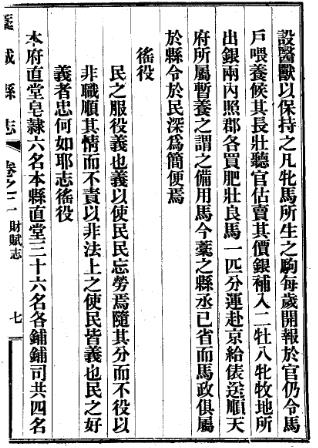 設醫獸以保持之凡牝馬所生之駒每歲開報於官仍令馬
戶喂養候其長壯聽官估賣其價銀補入二牡八牝牧地所
出銀兩內照郡各買肥壯良馬一匹分運赴京給俵送順天
府所屬暫養之謂之備用馬今藁之縣丞已省而馬政俱屬
於縣令於民深為簡便焉
徭役
民之服役義也義以使民民忘勞焉隨其分而不役以
非職順其情而不責以非法上之使民皆義也民之好
義者忠何如耶志徭役
本府直堂皂隸六名本縣直堂三十六名各鋪鋪司共四名
藁城縣志
卷之二
財賦志
七